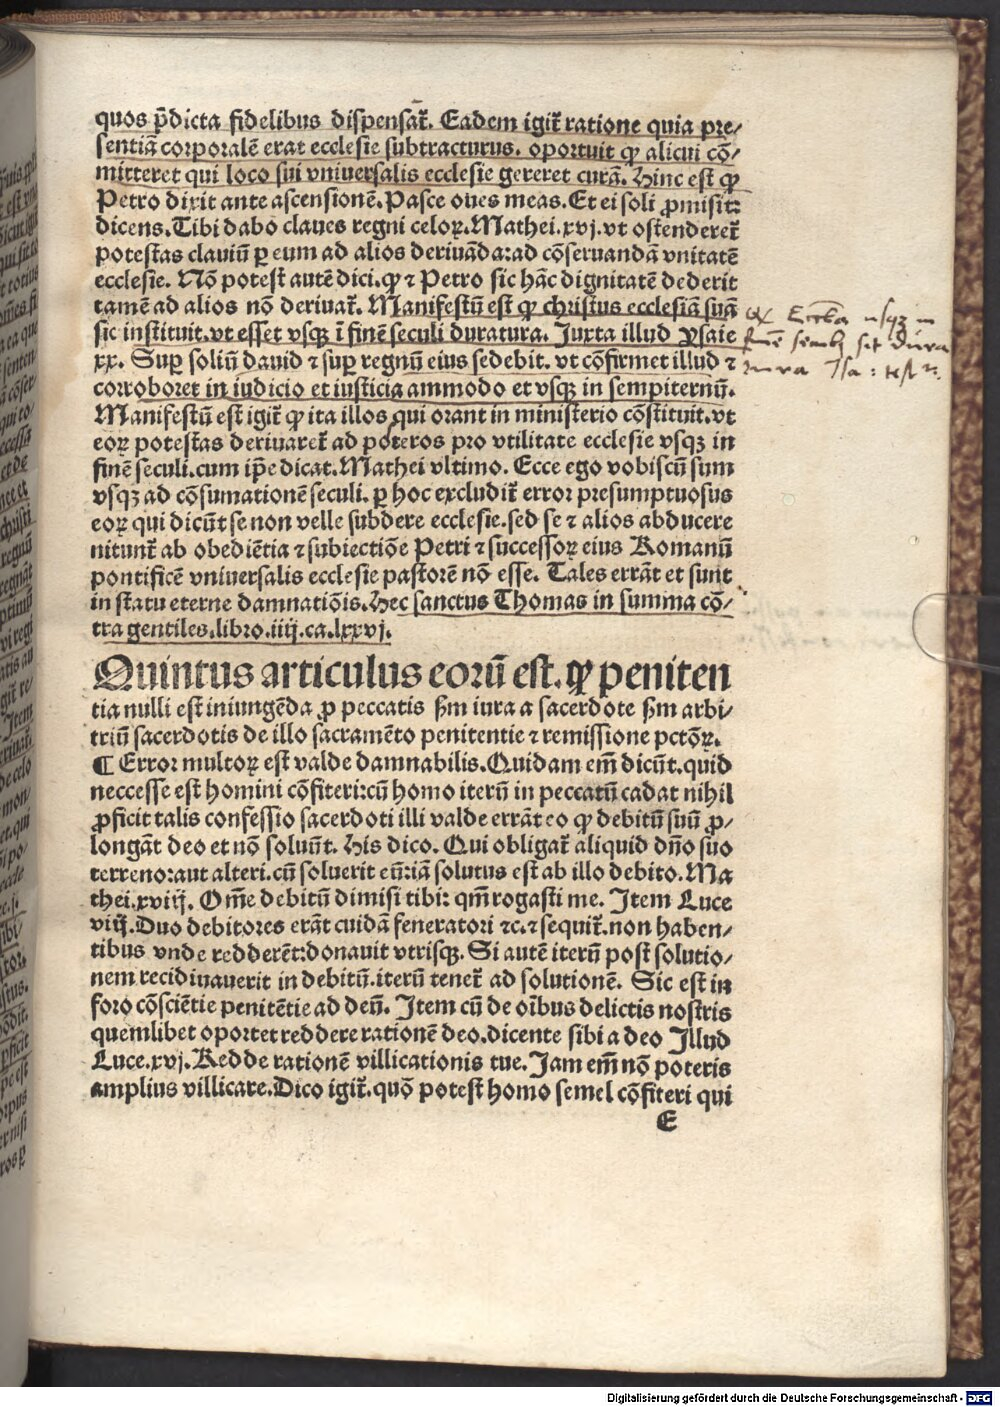 quos p̄dicta fidelibus dispensar̄. Eadem igit̄ ratione quia pre/
sentiā corporalē erat ecclesie subtracturus. oportuit qꝫ alicui cō/
mitteret qui loco sui vniuersalis ecclesie gereret curā. Hinc est qꝫ
Petro dixit ante ascensionē. Pasce oues meas. Et ei soli ꝓmisit:
dicens. Tibi dabo claues regni celoꝝ. Mathei. xvj. vt ostenderet̄
potestas clauiū ꝑ eum ad alios deriuāda: ad cōseruandā vnitatē
ecclesie. Nō potest autē dici. qꝫ ⁊ Petro sic hāc dignitatē dederit
tamē ad alios nō deriuat̄. Manifestū est qꝫ christus ecclesiā suā
sic instituit. vt esset vsqꝫ ī finē seculi duratura. Juxta illud Ysaie
xx. Suꝑ soliū dauid ⁊ suꝑ regnū eius sedebit. vt cōfirmet illud ⁊
corroboret in iudicio et iusticia ammodo et vsqꝫ in sempiternū.
Manifestū est igit̄ qꝫ ita illos qui orant in ministerio cōstituit. vt
eoꝝ potestas deriuaret̄ ad posteros pro vtilitate ecclesie vsqꝫ in
finē seculi. cum ip̄e dicat. Mathei vltimo. Ecce ego vobiscū sum
vsqꝫ ad cōsumationē seculi. ꝑ hoc excludit̄ error presumptuosus
eoꝝ qui dicūt se non velle subdere ecclesie. sed se ⁊ alios abducere
nitunt̄ ab obediētia ⁊ subiectiōe Petri ⁊ successoꝝ eius Romanū
pontificē vniuersalis ecclesie pastorē nō esse. Tales errāt et sunt
in statu eterne damnatiōis. Hec sanctus Thomas in summa cō/
tra gentiles. libro. iiij. ca. lxxvj.
Quintus articulus eorū est. qꝫ peniten
tia nulli est iniungēda ꝓ peccatis ẜm iura a sacerdote ẜm arbi/
triū sacerdotis de illo sacramēto penitentie ⁊ remissione pctōꝝ.
¶ Error multoꝝ est valde damnabilis. Quidam em̄ dicūt. quid
neccesse est homini cōfiteri: cū homo iterū in peccatū cadat nihil
ꝓficit talis confessio sacerdoti illi valde errāt eo qꝫ debitū suū ꝓ/
longāt deo et nō soluūt. His dico. Qui obligat̄ aliquid dn̄o suo
terreno: aut alteri. cū soluerit eū: iā solutus est ab illo debito. Ma
thei. xviij. Om̄e debitū dimisi tibi: qm̄ rogasti me. Item Luce
viij. Duo debitores erāt cuidā feneratori ⁊c. ⁊ sequit̄. non haben/
tibus vnde redderēt: donauit vtrisqꝫ. Si autē iterū post solutio/
nem recidiuauerit in debitū. iterū tenet̄ ad solutionē. Sic est in
foro cōsciētie penitētie ad deū. Item cū de oībus delictis nostris
quemlibet oportet reddere rationē deo. dicente sibi a deo Illud
Luce. xvj. Redde rationē villicationis tue. Jam em̄ nō poteris
amplius villicare. Dico igit̄. quō potest homo semel cōfiteri qui
E
vsqꝫ in
finē
Digitalisierung gefördert durch die Deutsche Forschungsgemeinschaft - DFG